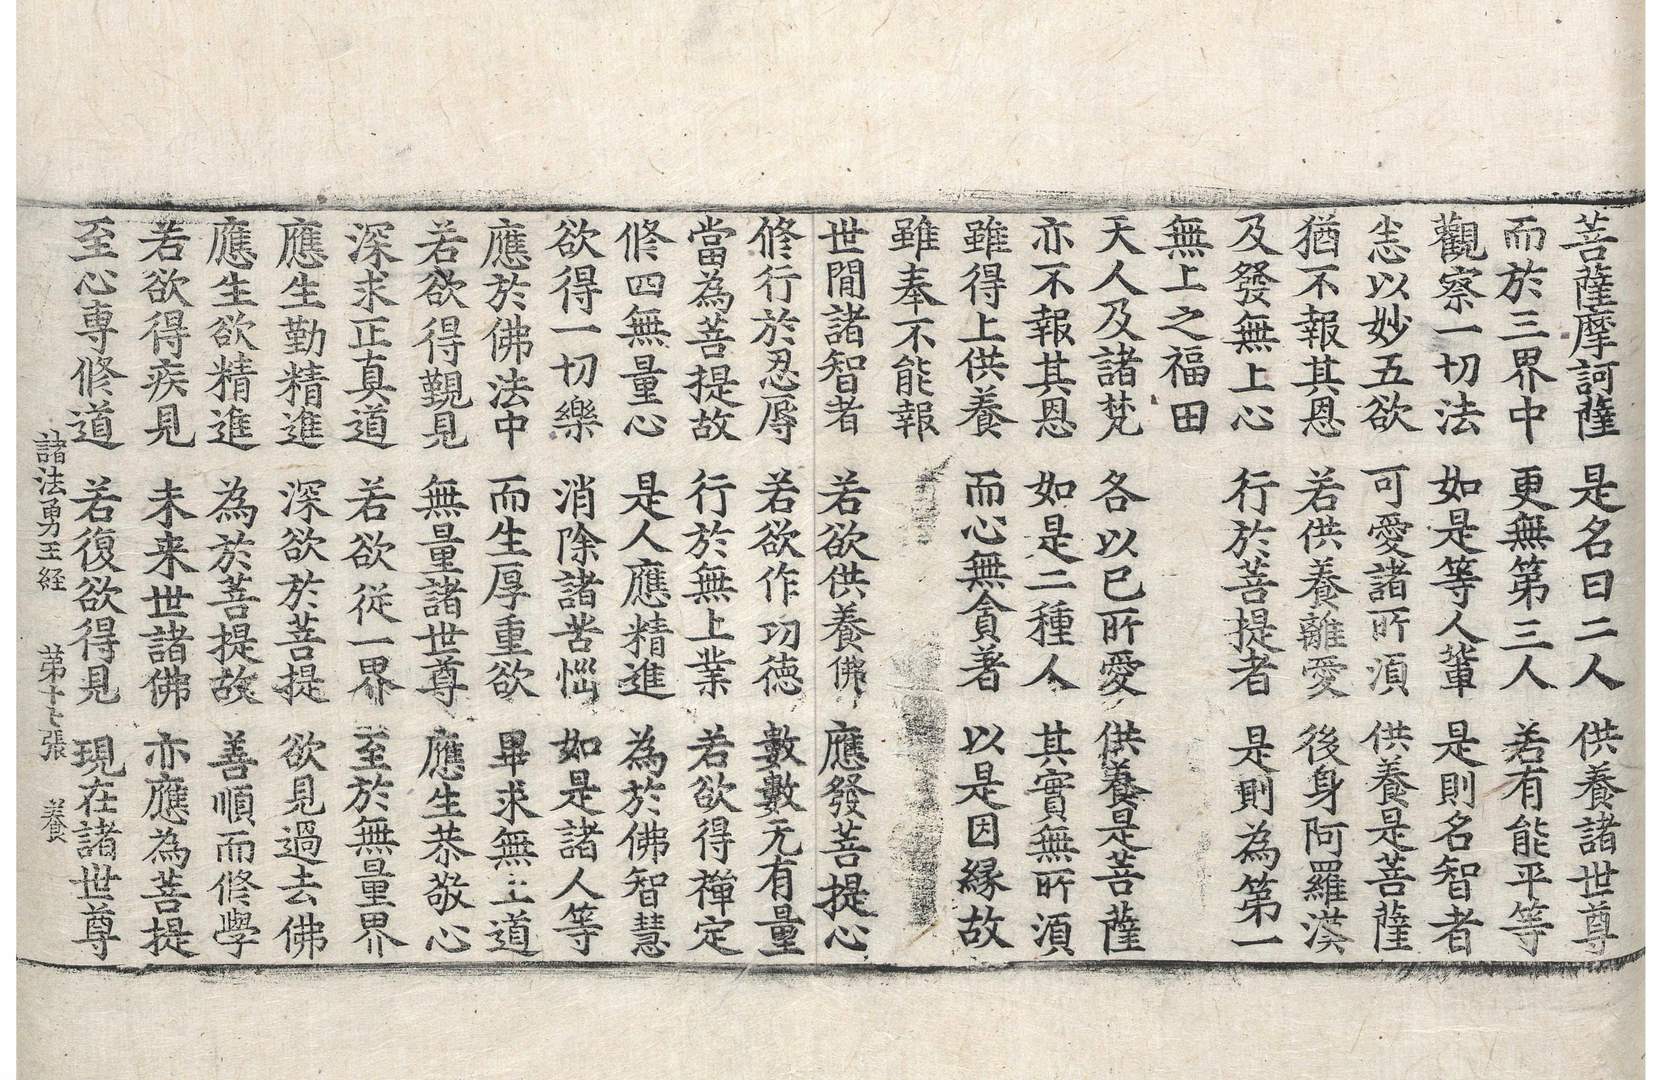 菩薩摩訶薩 是名曰二人 供養諸世尊
而於三界中 更無第三人 若有能平等
觀察一切法 如是等人輩 是則名智者
悉以妙五欲 可愛諸所湏 供養是菩薩
猶不報其恩 若供養離愛 後身阿羅漢
及發無上心 行於菩提者 是則為第一
無上之福田
天人及諸梵 各以已所愛 供養是菩薩
亦不報其恩 如是二種人 其實無所湏
雖得上供養 而心無貪著 以是因緣故
雖奉不能報
世間諸智者 若欲供養佛 應發菩提心
修行於忍辱 若欲作功德 數數无有量
當為菩提故 行於無上業 若欲得禪定
修四無量心 是人應精進 為於佛智慧
欲得一切樂 消除諸苦惱 如是諸人等
應於佛法中 而生厚重欲 畢求無上道
若欲得覲見 無量諸世尊 應生恭敬心
深求正真道 若欲從一界 至於無量界
應生勤精進 深欲於菩提 欲見過去佛
應生欲精進 為於菩提故 善順而修學
若欲得疾見 未来世諸佛 亦應為菩提
至心專修道 若復欲得見 現在諸世尊
諸法勇王経 第十七張 養